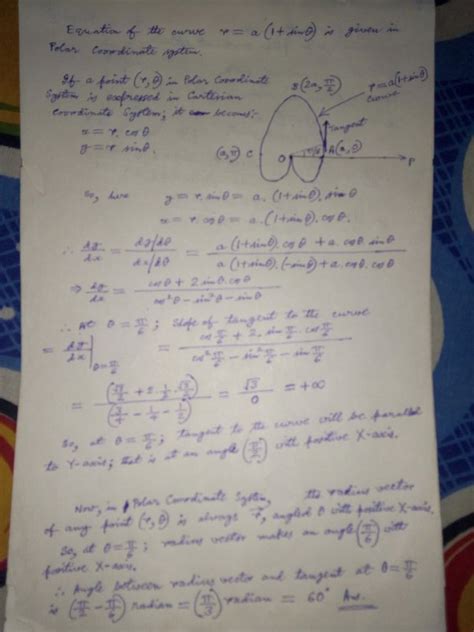 Equation of the curve r = a(1+sinθ) is given in
Polar Coordinate system.
If a point (r, θ) in Polar Coordinate
System is expressed in Cartesian
Coordinate System; it becomes:-
x = r. cosθ
y = r sinθ.
B(2a, π/2)
r = a(1+sinθ)
curve
Tangent
(a, π) C
O
π/6
A(a, 0)
P
So, here y = r. sinθ = a. (1+sinθ). sinθ
x = r. cosθ = a. (1+sinθ). cosθ.
∴ dy/dx = (dy/dθ)/(dx/dθ) = (a(1+sinθ). cosθ + a. cosθ sinθ)/(a(1+sinθ). (-sinθ) + a. cosθ. cosθ)
⇒ dy/dx = (cosθ + 2 sinθ. cosθ)/(cos²θ - sin²θ - sinθ)
∴ At θ = π/6; slope of tangent to the curve
= dy/dx|θ=π/6 = (cos π/6 + 2. sin π/6. cos π/6)/(cos² π/6 - sin² π/6 - sin π/6)
= (√3/2 + 2. 1/2. √3/2)/(3/4 - 1/4 - 1/2) = √3/0 = +∞
So, at θ = π/6; tangent to the curve will be parallel
to Y-axis; that is at an angle (π/2) with positive X-axis.
Now, in Polar Coordinate System, the radius vector
of any point (r, θ) is always r⃗, angled θ with positive X-axis.
So, at θ = π/6; radius vector makes an angle (π/6) with
positive X-axis.
∴ Angle between radius vector and tangent at θ = π/6
is (π/2 - π/6) radian = (π/3) radian = 60° Ans.